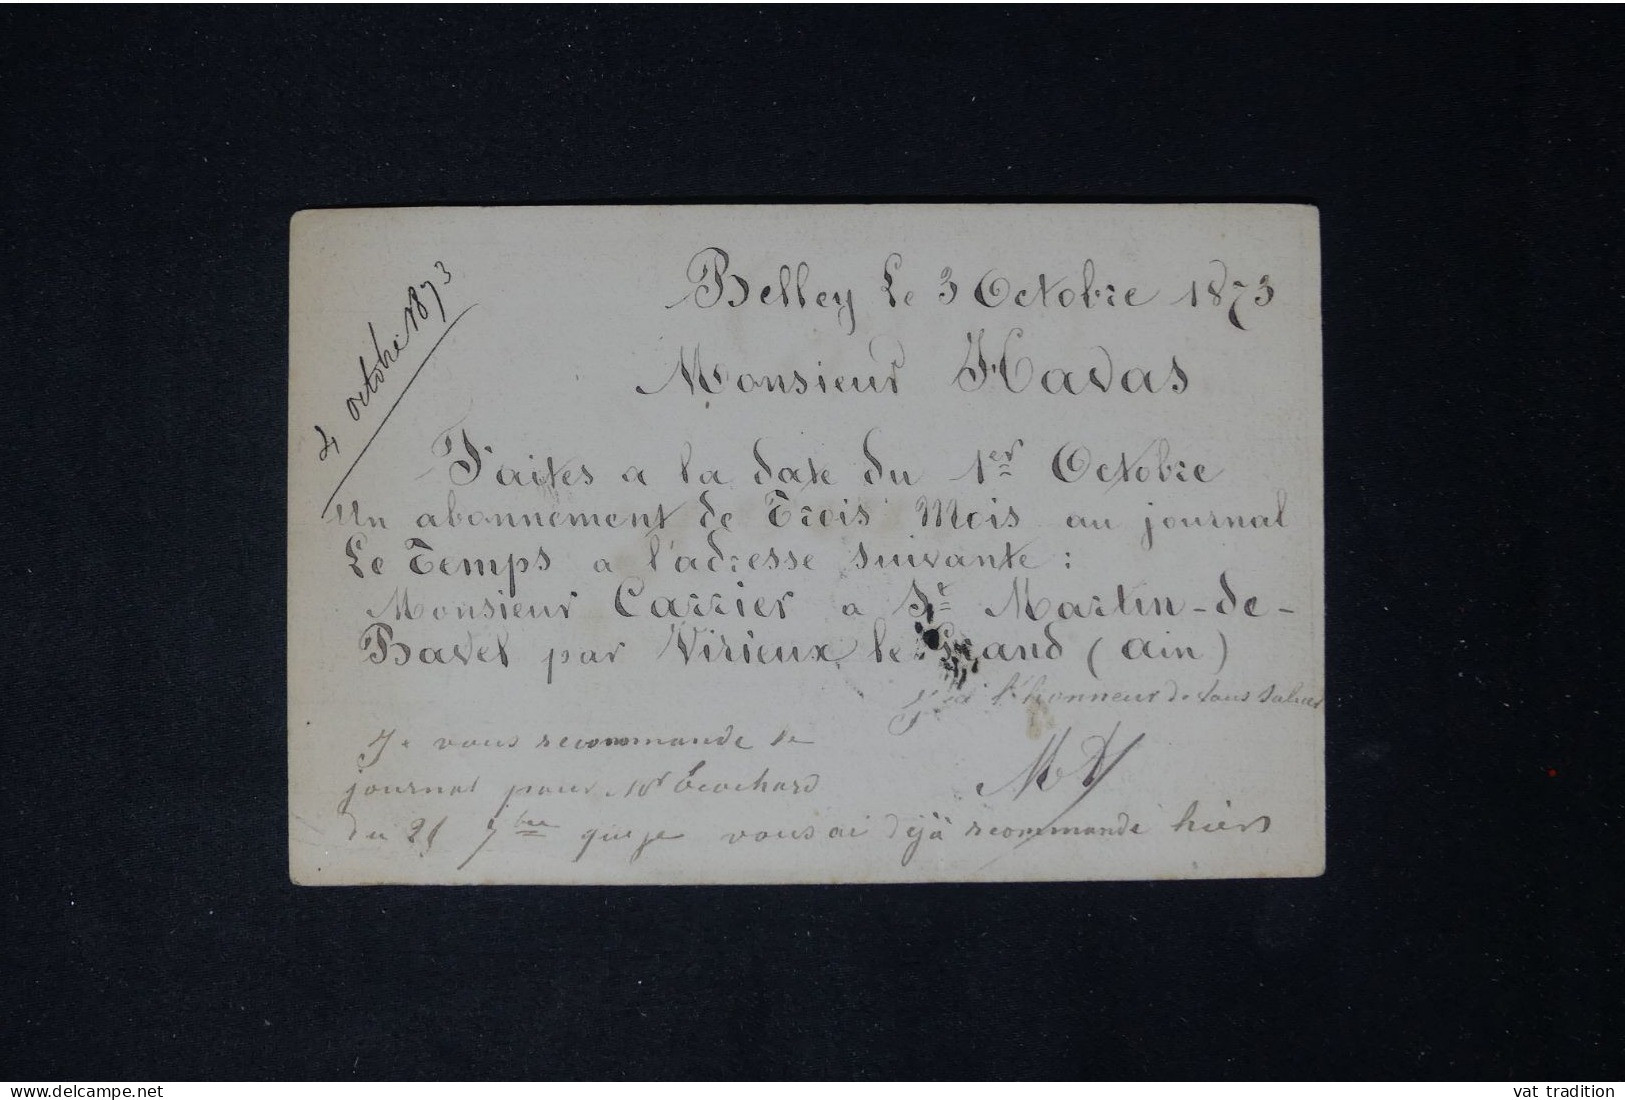 Belley Le 3 Octobre 1873
4 octobre 1873
Monsieur Havas
Faites a la date du 1er Octobre
Un abonnement de Trois Mois au journal
Le Temps a l'adresse suivante :
Monsieur Carrier a St Martin-de-
Bavel par Virieux le Grand (Ain)
J'ai l'honneur de vous saluer
Je vous recommande le
journal pour Mr
du 25 7bre que je vous ai déjà recommandé hiers
www.delcampe.net
vat tradition